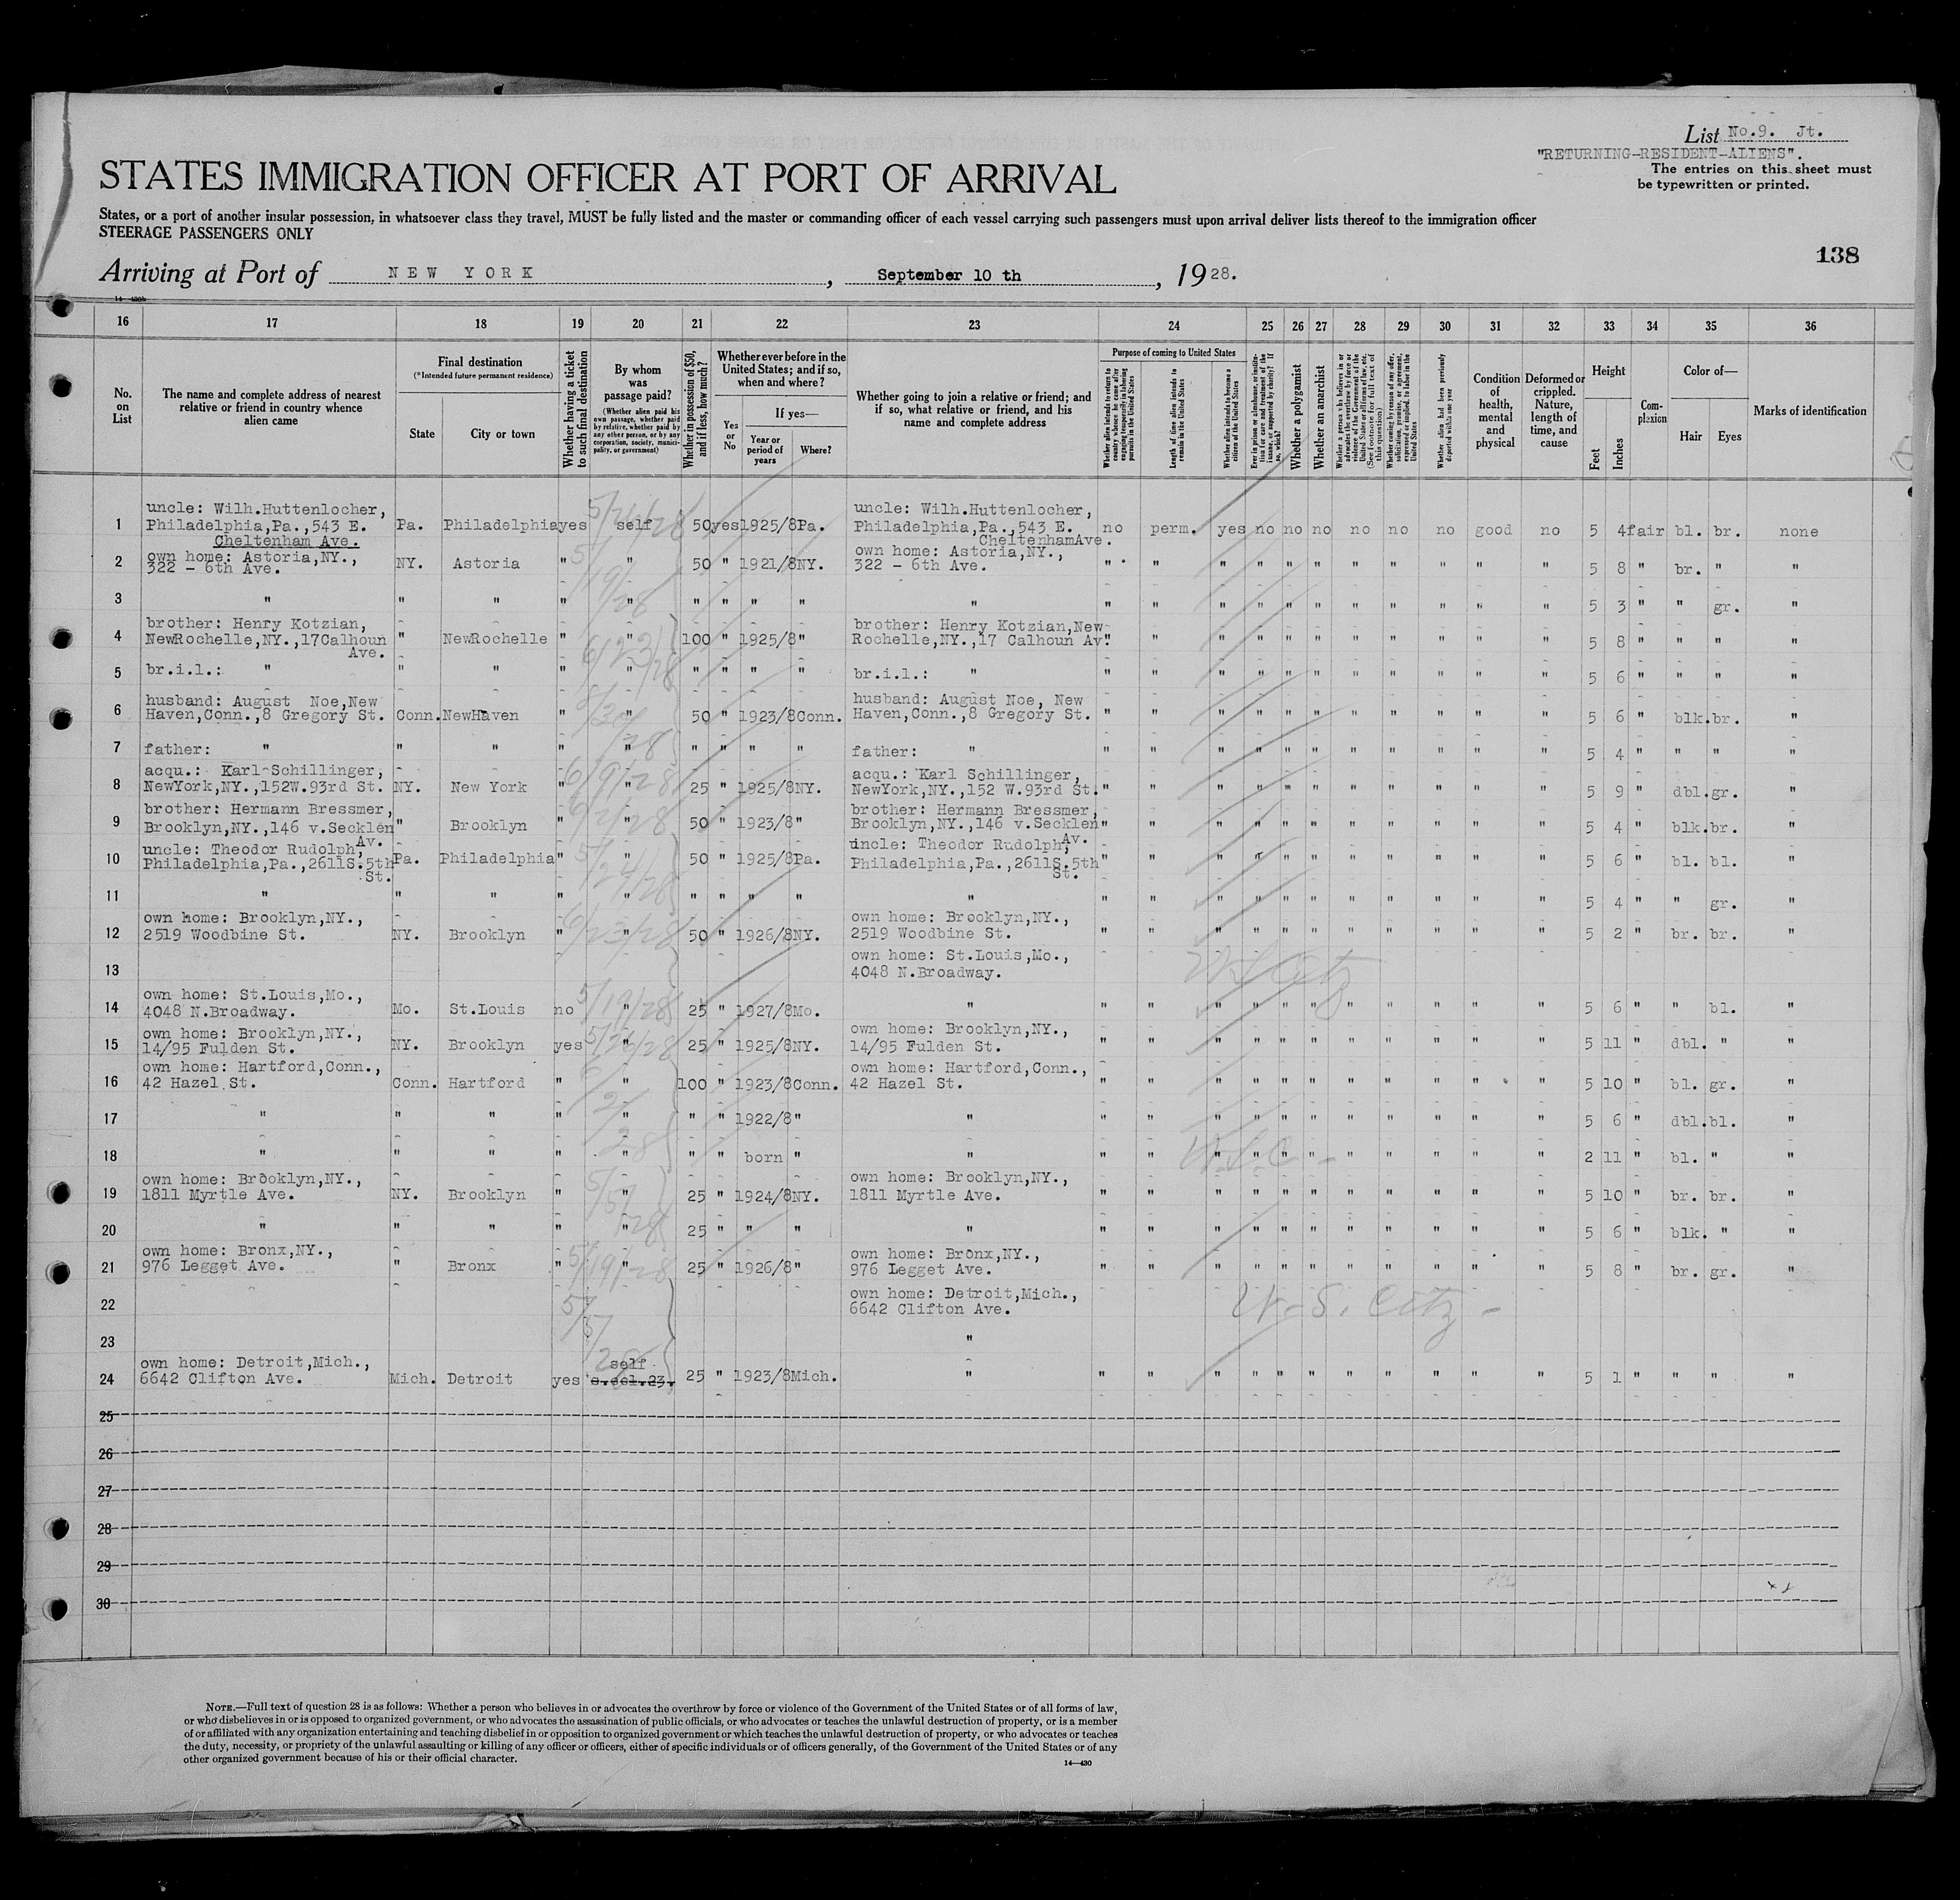 List No.9. Jt.
"RETURNING-RESIDENT-ALIENS".
The entries on this sheet must
be typewritten or printed.
STATES IMMIGRATION OFFICER AT PORT OF ARRIVAL
States, or a port of another insular possession, in whatsoever class they travel, MUST be fully listed and the master or commanding officer of each vessel carrying such passengers must upon arrival deliver lists thereof to the immigration officer
STEERAGE PASSENGERS ONLY
138
Arriving at Port of NEW YORK, September 10 th, 1928.
16 17 18 19 20 21 22 23 24 25 26 27 28 29 30 31 32 33 34 35 36
No. on List
The name and complete address of nearest relative or friend in country whence alien came
Final destination
(*Intended future permanent residence)
State
City or town
Whether having a ticket to such final destination
By whom was passage paid?
(Whether alien paid his own passage, whether paid by relative, whether paid by any other person, or by any corporation, society, municipality, or government)
Whether in possession of $50, and if less, how much?
Whether ever before in the United States; and if so, when and where?
Yes or No
If yes—
Year or period of years
Where?
Whether going to join a relative or friend; and if so, what relative or friend, and his name and complete address
Purpose of coming to United States
Whether alien intends to return to country whence he came after engaging temporarily in laboring pursuits in the United States
Length of time alien intends to remain in the United States
Whether alien intends to become a citizen of the United States
Ever in prison or almshouse, or institution for care and treatment of the insane, or supported by charity? If so, which?
Whether a polygamist
Whether an anarchist
Whether a person who believes in or advocates the overthrow by force or violence of the Government of the United States or all forms of law, etc. (See footnote for full text of this question)
Whether coming by reason of any offer, solicitation, promise, or agreement, expressed or implied, to labor in the United States
Whether alien had been previously deported within one year
Condition of health, mental and physical
Deformed or crippled. Nature, length of time, and cause
Height
Feet
Inches
Complexion
Color of—
Hair
Eyes
Marks of identification
1 uncle: Wilh.Huttenlocher, Philadelphia,Pa.,543 E. Cheltenham Ave. Pa. Philadelphia yes self 50 yes 1925/8 Pa. uncle: Wilh.Huttenlocher, Philadelphia,Pa.,543 E. CheltenhamAve. no perm. yes no no no no no no good no 5 4 fair bl. br. none
5/26/28
2 own home: Astoria,NY., 322 - 6th Ave. NY. Astoria " " 50 " 1921/8 NY. own home: Astoria,NY., 322 - 6th Ave. " " " " " " " " " " " 5 8 " br. " "
5/19/28
3 " " " " " " " " " " " " " " " " " " " " " 5 3 " " gr. "
4 brother: Henry Kotzian, NewRochelle,NY.,17Calhoun Ave. " NewRochelle " " 100 " 1925/8 " brother: Henry Kotzian,New Rochelle,NY.,17 Calhoun Av. " " " " " " " " " " " 5 8 " " " "
6/23/28
5 br.i.l.: " " " " " " " " " br.i.l.: " " " " " " " " " " " " 5 6 " " " "
6 husband: August Noe,New Haven,Conn.,8 Gregory St. Conn. NewHaven " " 50 " 1923/8 Conn. husband: August Noe, New Haven,Conn.,8 Gregory St. " " " " " " " " " " " 5 6 " blk. br. "
7 father: " " " " " " " " " father: " " " " " " " " " " " " 5 4 " " " "
8 acqu.: Karl Schillinger, NewYork,NY.,152W.93rd St. NY. New York " " 25 " 1925/8 NY. acqu.: Karl Schillinger, NewYork,NY.,152 W.93rd St. " " " " " " " " " " " 5 9 " dbl. gr. "
6/9/28
9 brother: Hermann Bressmer, Brooklyn,NY.,146 v.Secklen Av. " Brooklyn " " 50 " 1923/8 " brother: Hermann Bressmer, Brooklyn,NY.,146 v.Secklen Av. " " " " " " " " " " " 5 4 " blk. br. "
6/2/28
10 uncle: Theodor Rudolph, Philadelphia,Pa.,2611S.5th St. Pa. Philadelphia " " 50 " 1925/8 Pa. uncle: Theodor Rudolph, Philadelphia,Pa.,2611S.5th St. " " " " " " " " " " " 5 6 " bl. bl. "
5/24/28
11 " " " " " " " " " " " " " " " " " " " " " 5 4 " " gr. "
12 own home: Brooklyn,NY., 2519 Woodbine St. NY. Brooklyn " " 50 " 1926/8 NY. own home: Brooklyn,NY., 2519 Woodbine St. " " " " " " " " " " " 5 2 " br. br. "
6/23/28
13 own home: St.Louis,Mo., 4048 N.Broadway.
U S Citz
14 own home: St.Louis,Mo., 4048 N.Broadway. Mo. St.Louis no " 25 " 1927/8 Mo. " " " " " " " " " " " " 5 6 " " bl. "
5/19/28
15 own home: Brooklyn,NY., 14/95 Fulden St. NY. Brooklyn yes " 25 " 1925/8 NY. own home: Brooklyn,NY., 14/95 Fulden St. " " " " " " " " " " " 5 11 " dbl. " "
5/26/28
16 own home: Hartford,Conn., 42 Hazel St. Conn. Hartford " " 100 " 1923/8 Conn. own home: Hartford,Conn., 42 Hazel St. " " " " " " " " " " " 5 10 " bl. gr. "
6/2/28
17 " " " " " " " 1922/8 " " " " " " " " " " " " " 5 6 " dbl. bl. "
18 " " " " " " " born " " " " " " " " " " " " " 2 11 " bl. " "
U.S.C -
19 own home: Brooklyn,NY., 1811 Myrtle Ave. NY. Brooklyn " " 25 " 1924/8 NY. own home: Brooklyn,NY., 1811 Myrtle Ave. " " " " " " " " " " " 5 10 " br. br. "
5/5/28
20 " " " " " 25 " " " " " " " " " " " " " " " 5 6 " blk. " "
21 own home: Bronx,NY., 976 Legget Ave. " Bronx " " 25 " 1926/8 " own home: Bronx,NY., 976 Legget Ave. " " " " " " " " " " " 5 8 " br. gr. "
5/19/28
22 own home: Detroit,Mich., 6642 Clifton Ave.
U.S. Citz -
5/5/28
23 "
24 own home: Detroit,Mich., 6642 Clifton Ave. Mich. Detroit yes self 25 " 1923/8 Mich. " " " " " " " " " " " " 5 1 " " " "
25
26
27
28
29
30
NOTE.—Full text of question 28 is as follows: Whether a person who believes in or advocates the overthrow by force or violence of the Government of the United States or of all forms of law,
or who disbelieves in or is opposed to organized government, or who advocates the assassination of public officials, or who advocates or teaches the unlawful destruction of property, or is a member
of or affiliated with any organization entertaining and teaching disbelief in or opposition to organized government or which teaches the unlawful destruction of property, or who advocates or teaches
the duty, necessity, or propriety of the unlawful assaulting or killing of any officer or officers, either of specific individuals or of officers generally, of the Government of the United States or of any
other organized government because of his or their official character.
14—430